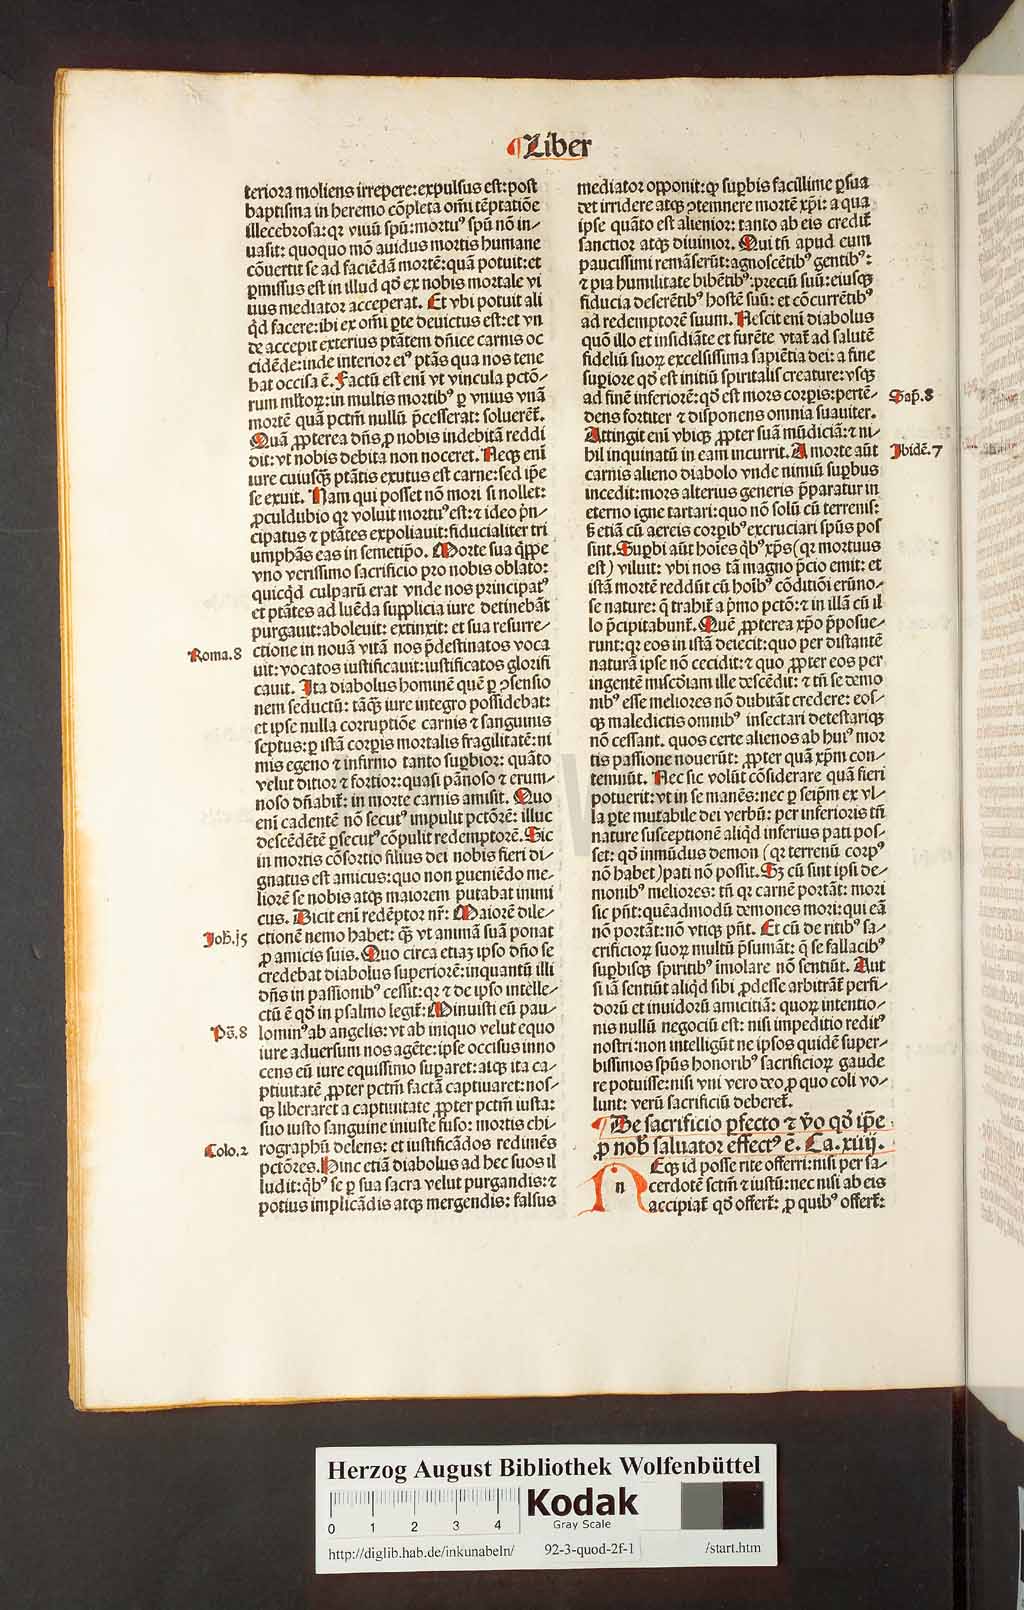 ¶Liber
teriora moliens irrepere: expulsus est: post
baptisma in heremo cōpleta om̄i tēptatiōe
illecebrosa: qꝛ viuū spū: mortuꝰ spū nō in-
uasit: quoquo mō auidus mortis humane
cōuertit se ad faciēdā mortē: quā potuit: et
ꝑmissus est in illud qđ ex nobis mortale vi
uus mediator acceperat. Et vbi potuit ali
qͥd facere: ibi ex om̄i ꝑte deuictus est: et vn
de accepit exterius ptātem dn̄ice carnis oc
cidēde: inde interior eiꝰ ptās qua nos tene
bat occisa ē. Factū est enī vt vincula pctō-
rum mltoꝝ: in multis mortibꝰ ꝑ vnius vnā
mortē quā pctm̄ nullū p̄cesserat: soluerēt᷑.
Quā ꝓpterea dn̄s ꝓ nobis indebitā reddi
dit: vt nobis debita non noceret. Neqꝫ enī
iure cuiusqꝫ ptātis exutus est carne: sed ip̄e
se exuit. Nam qui posset nō mori si nollet:
ꝓculdubio qꝛ voluit mortuꝰ est: ⁊ ideo p̄n-
cipatus ⁊ ptātes expoliauit: fiducialiter tri
umphās eas in semetip̄o. Morte sua q̄ppe
vno verissimo sacrificio pro nobis oblato:
quicqͥd culparū erat vnde nos principatꝰ
et ptātes ad luēda supplicia iure detinebāt
purgauit: aboleuit: extinxit: et sua resurre-
Roma.8 ctione in nouā vitā nos p̄destinatos voca
uit: vocatos iustificauit: iustificatos glorifi
cauit. Ita diabolus hominē quē ꝑ ꝯsensio
nem seductū: tāqꝫ iure integro possidebat:
et ipse nulla corruptiōe carnis ⁊ sanguinis
septus: ꝑ istā corꝑis mortalis fragilitatē: ni
mis egeno ⁊ infirmo tanto suꝑbior: quāto
velut ditior ⁊ fortior: quasi pānoso ⁊ erum-
noso dn̄abat᷑: in morte carnis amisit. Quo
enī cadentē nō secutꝰ impulit pctōrē: illuc
descēdētē ꝑsecutꝰ cōpulit redemptorē. Sic
in mortis cōsortio filius dei nobis fieri di-
gnatus est amicus: quo non ꝑueniēdo me-
liorē se nobis atqꝫ maiorem putabat inimi
cus. Dicit enī redēptor nr̄: Maiorē dile-
Joh̄.j5 ctionē nemo habet: qꝫ vt animā suā ponat
ꝓ amicis suis. Quo circa etiaꝫ ipso dn̄o se
credebat diabolus superiorē: inquantū illi
dn̄s in passionibꝰ cessit: qꝛ ⁊ de ipso intelle-
ctū ē qđ in psalmo legit᷑: Minuisti eū pau-
Ps̄.8 lominꝰ ab angelis: vt ab iniquo velut equo
iure aduersum nos agēte: ipse occisus inno
cens eū iure equissimo suꝑaret: atqꝫ ita ca-
ptiuitatē ꝓpter pctm̄ factā captiuaret: nos-
qꝫ liberaret a captiuitate ꝓpter pctm̄ iusta:
suo iusto sanguine iniuste fuso: mortis chi-
Colo.2 rographū delens: et iustificādos redimēs
pctōres. Hinc etiā diabolus ad hec suos il
ludit: qͥbꝰ se ꝑ sua sacra velut purgandis: ⁊
potius implicādis atqꝫ mergendis: falsus
mediator opponit: qꝫ suꝑbis facillime ꝑsua
det irridere atqꝫ ꝯtemnere mortē xp̄i: a qua
ipse quāto est alienior: tanto ab eis credit᷑
sanctior atqꝫ diuinior. Qui tn̄ apud eum
paucissimi remāserūt: agnoscētibꝰ gentibꝰ:
⁊ pia humilitate bibētibꝰ: preciū suū: eiusqꝫ
fiducia deserētibꝰ hostē suū: et cōcurrētibꝰ
ad redemptorē suum. Nescit enī diabolus
quō illo et insidiāte et furēte vtat᷑ ad salutē
fideliū suoꝝ excelsissima sapiētia dei: a fine
suꝑiore qđ est initiū spiritalis creature: vsqꝫ
ad finē inferiorē: qđ est mors corꝑis: pertē- Sap̄.8
dens fortiter ⁊ disponens omnia suauiter.
Attingit enī vbiqꝫ ꝓpter suā mūdiciā: ⁊ ni-
hil inquinatū in eam incurrit. A morte aūt Ibidē.7
carnis alieno diabolo vnde nimiū suꝑbus
incedit: mors alterius generis p̄paratur in
eterno igne tartari: quo nō solū cū terrenis:
ſꝫ etiā cū aereis corꝑibꝰ excruciari spūs pos
sint. Suꝑbi aūt hoīes qͥbꝰ xp̄s (qꝛ mortuus
est) viluit: vbi nos tā magno p̄cio emit: et
istā mortē reddūt cū hoībꝰ cōditiōi erūno-
se nature: q̄ trahit᷑ a pͥmo pctō: ⁊ in illā cū il
lo p̄cipitabunt᷑. Quē ꝓpterea xp̄o p̄posue-
runt: qꝛ eos in istā deiecit: quo per distantē
naturā ipse nō cecidit: ⁊ quo ꝓpter eos per
ingentē misc̄diam ille descēdit: ⁊ tn̄ se demo
nibꝰ esse meliores nō dubitāt credere: eos-
qꝫ maledictis omnibꝰ insectari detestariqꝫ
nō cessant. quos certe alienos ab huiꝰ mor
tis passione nouerūt: ꝓpter quā xp̄m con-
temnūt. Nec sic volūt cōsiderare quā fieri
potuerit: vt in se manēs: nec ꝑ seip̄m ex vl-
la ꝑte mutabile dei verbū: per inferioris tn̄
nature susceptionē aliqͥd inferius pati pos-
set: qđ inmūdus demon (qꝛ terrenū corpꝰ
nō habet) pati nō possit. Sꝫ cū sint ipsi de-
monibꝰ meliores: tn̄ qꝛ carnē portāt: mori
sic pn̄t: quēadmodū demones mori: qui eā
nō portāt: nō vtiqꝫ pn̄t. Et cū de ritibꝰ sa-
crificioꝝ suoꝝ multū p̄sumāt: q̄ se fallacibꝰ
suꝑbisqꝫ spiritibꝰ imolare nō sentiūt. Aut
si iā sentiūt aliqͥd sibi ꝓdesse arbitrāt᷑ perfi-
dorū et inuidorū amicitiā: quoꝝ intentio-
nis nullū negociū est: nisi impeditio reditꝰ
nostri: non intelligūt ne ipsos quidē super-
bissimos spūs honoribꝰ sacrificioꝝ gaude
re potuisse: nisi vni vero deo ꝓ quo coli vo-
lunt: verū sacrificiū deberet᷑.
¶De sacrificio ꝑfecto ⁊ v̄o qđ ip̄e
ꝓ nob̄ saluator effectꝰ ē. Ca.xiiij.
Neqꝫ id posse rite offerri: nisi per sa-
n cerdotē sctm̄ ⁊ iustū: nec nisi ab eis
accipiat᷑ qđ offert᷑: ꝓ quibꝰ offert᷑:
Herzog August Bibliothek Wolfenbüttel
0 1 2 3 4
Kodak
Gray Scale
http://diglib.hab.de/inkunabeln/ 92-3-quod-2f-1 /start.htm